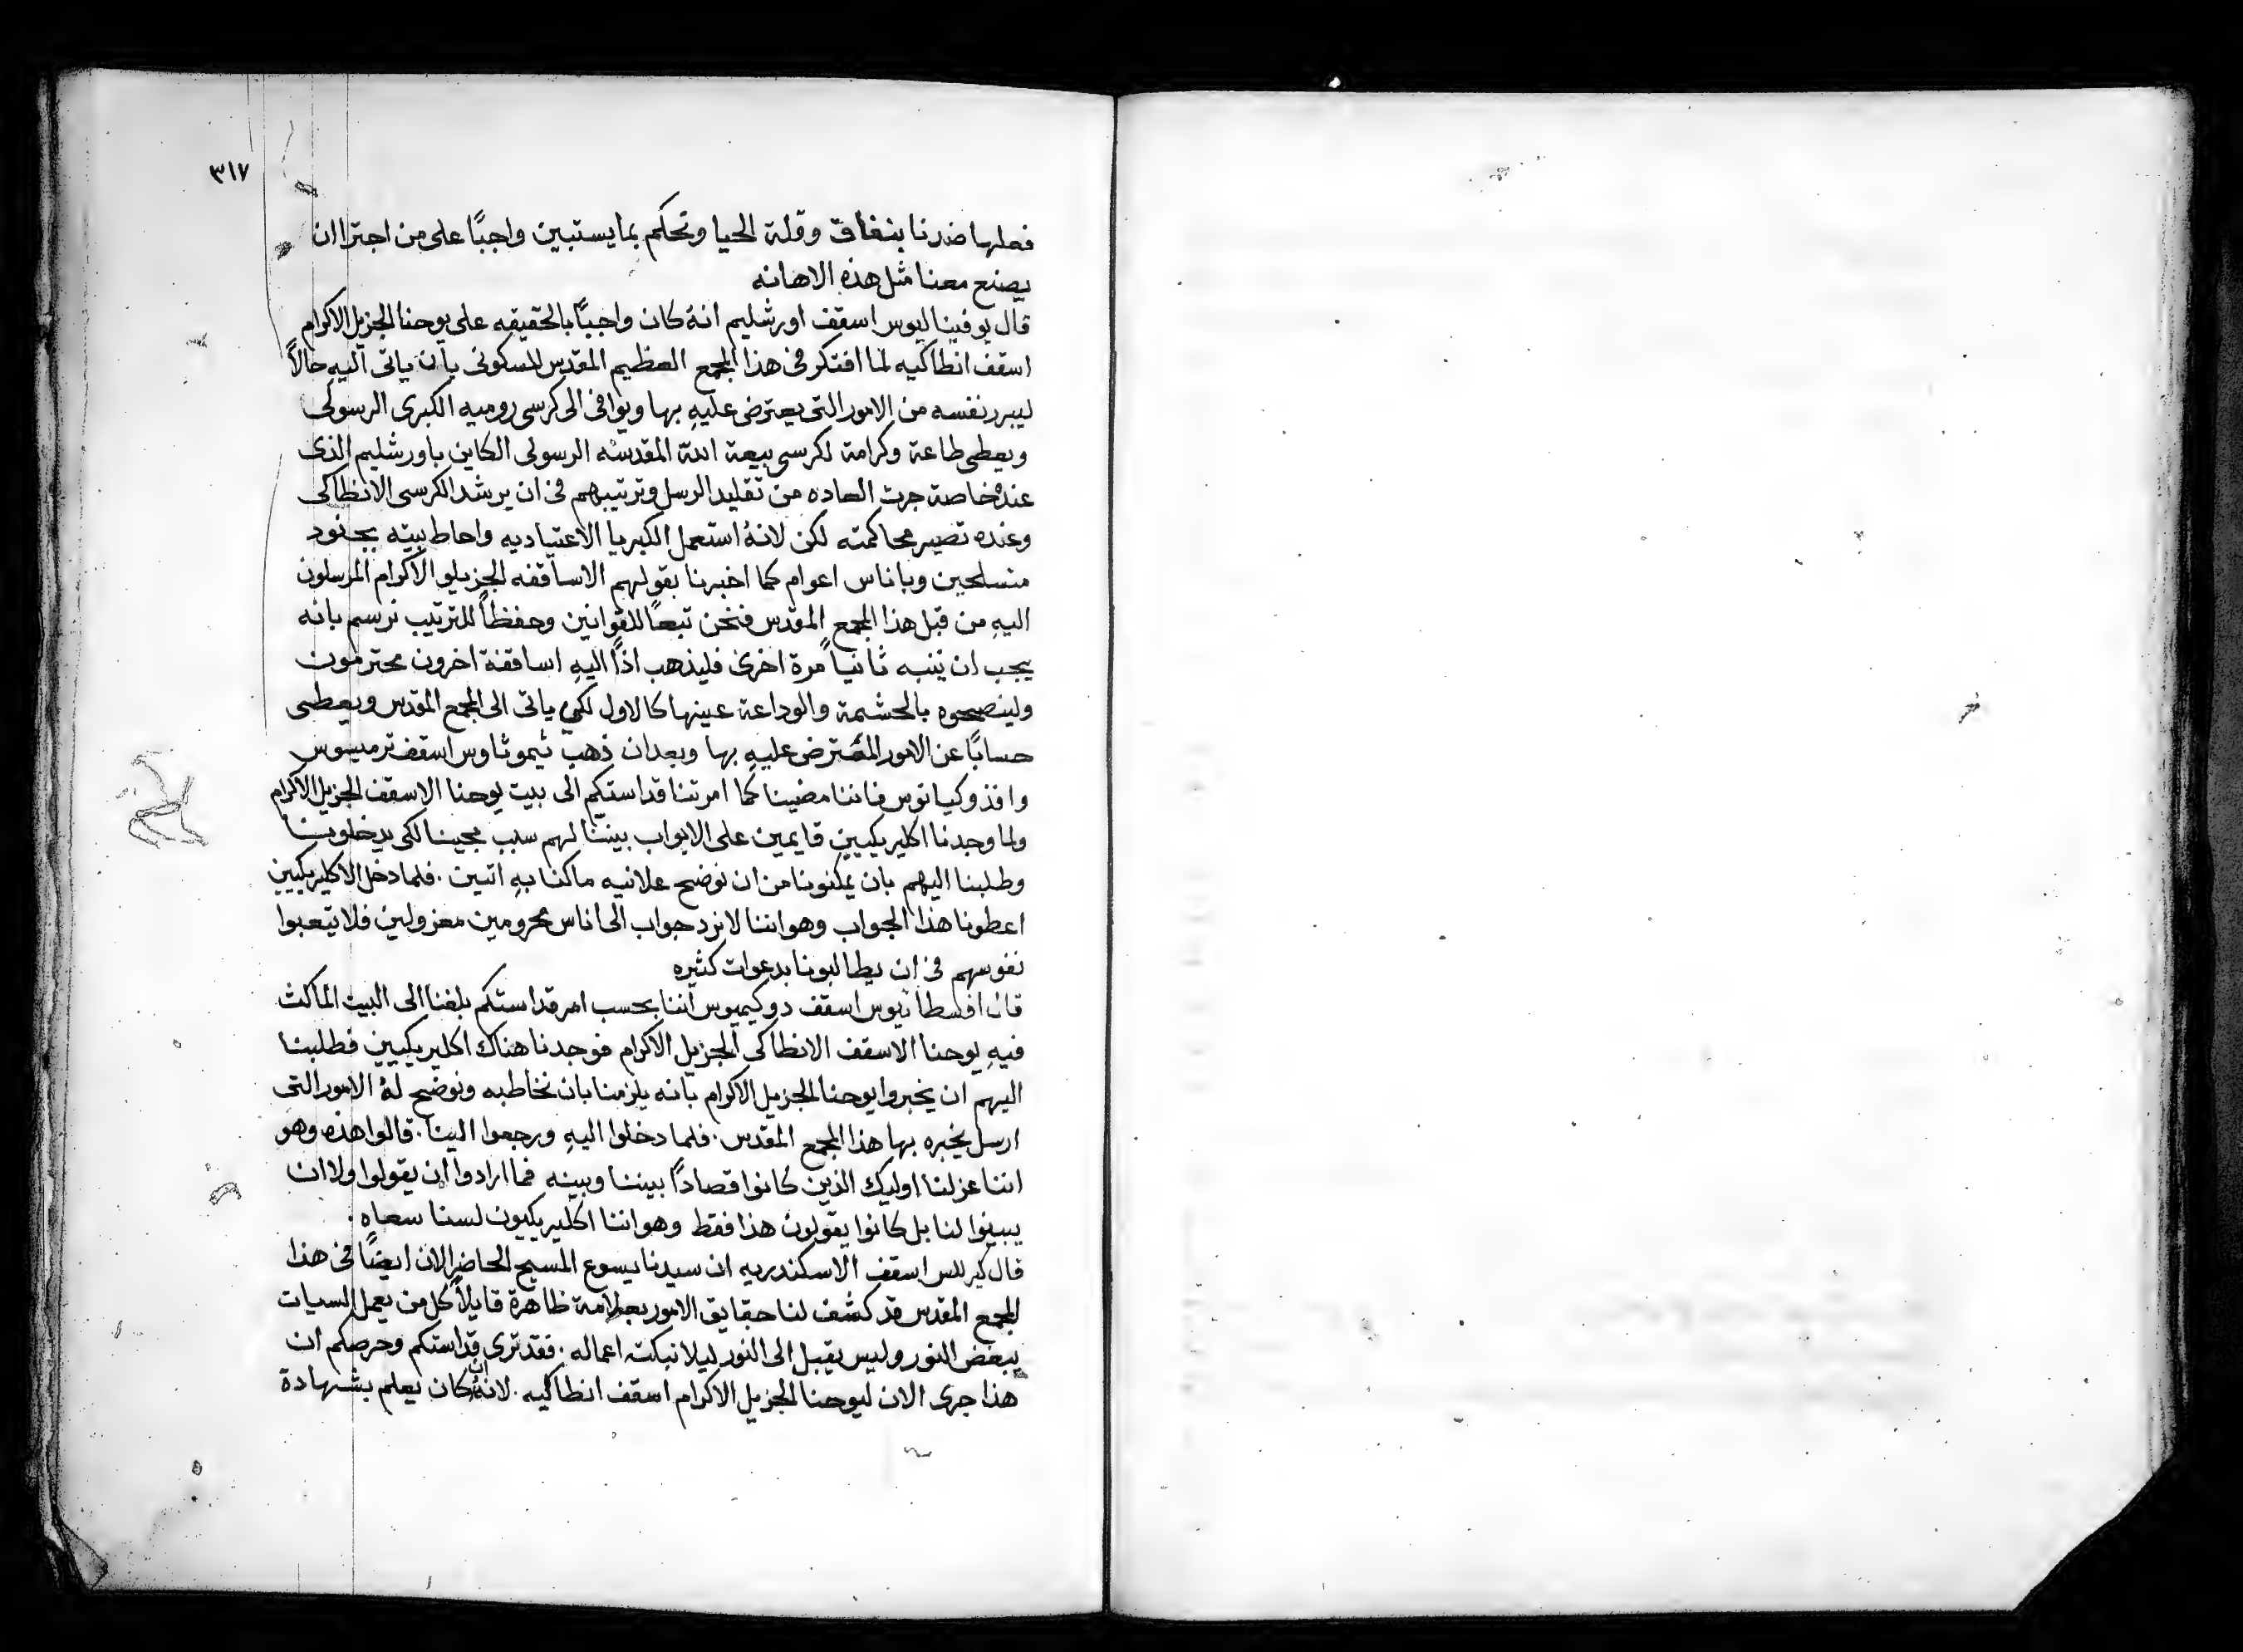 ٣١٧
فعلها ضدنا بنفاق وقلة الحيا وتحكم بما يستبين واجبًا على من اجترا ان
يصنع معنا مثل هذه الاهانه
قال يوفيناليوس اسقف اورشليم انهُ كان واجبًا بالحقيقه على يوحنا الجزيل الاكرام
اسقف انطاكيه لما افتكر في هذا المجمع العظيم المقدس المسكوني بان ياتي اليه حالاً
ليبرر نفسه من الامور التي يعترض عليهِ بها ويوافي الى كرسي روميه الكبرى الرسولي
ويعطي طاعة وكرامة لكرسي بيعة الله المقدسه الرسولي الكاين باورشليم الذي
عندهُ خاصة جرت العاده من تقليد الرسل وترتيبهم في ان يرشد الكرسي الانطاكي
وعنده تصير محاكمته لكن لانهُ استعمل الكبريا الاعتياديه واحاط بيته بجنود
متسلحين وباناس اعوام كما اخبرنا بقولهم الاساقفه الجزيلو الاكرام المرسلون
اليهِ من قبل هذا المجمع المقدس فنحن تبعًا للقوانين وحفظاً للترتيب نرسم بانه
يجب ان ينبه ثانياً مرة اخرى فليذهب اذاً اليهِ اساقفة اخرون محترمون
ولينصحوه بالحشمة والوداعة عينها كالاول لكي ياتي الى المجمع المقدس ويعطي
حسابًا عن الامور المعترض عليهِ بها وبعد ان ذهب تيموثاوس اسقف ترميسوس
وافذوكيانوس فاننا مضينا كما امرتنا قداستكم الى بيت يوحنا الاسقف الجزيل الاكرام
ولما وجدنا اكليريكيين قايمين على الابواب بيننا لهم سبب مجينا لكي يدخلوننا
وطلبنا اليهم بان يمكنونا من ان نوضح علانيه ما كنا بهِ اتين . فلما دخل الاكليريكيين
اعطونا هذا الجواب وهو اننا لا نرد جواب الى اناس محرومين معزولين فلا يتعبوا
نفوسهم في ان يطالبونا بدعوات كثيره
قال افسطاتيوس اسقف دوكيميوس اننا بحسب امر قداستكم بلغنا الى البيت الماكث
فيهِ يوحنا الاسقف الانطاكي الجزيل الاكرام فوجدنا هناك اكليريكيين فطلبنا
اليهم ان يخبروا يوحنا الجزيل الاكرام بانه يلزمنا بان نخاطبه ونوضح لهُ الامور التي
ارسل يخبره بها هذا المجمع المقدس . فلما دخلوا اليهِ ورجعوا الينا . قالوا هذه وهو
اننا عزلنا اوليك الذين كانوا قصادًا بيننا وبينه فما ارادوا ان يقولوا ولا ان
يبينوا لنا بل كانوا يقولون هذا فقط وهو اننا اكليريكيون لسنا سعاه .
قال كيرللس اسقف الاسكندريه ان سيدنا يسوع المسيح الحاضر الان ايضًا في هذا
المجمع المقدس قد كشف لنا حقايق الامور بعلامة ظاهرة قايلاً كل من يعمل السيات
يبغض النور وليس يقبل الى النور ليلا تبكت اعماله . فقد ترى قداستكم وحرصكم ان
هذا جرى الان ليوحنا الجزيل الاكرام اسقف انطاكيه . لانهُ ان كان يعلم بشهادة